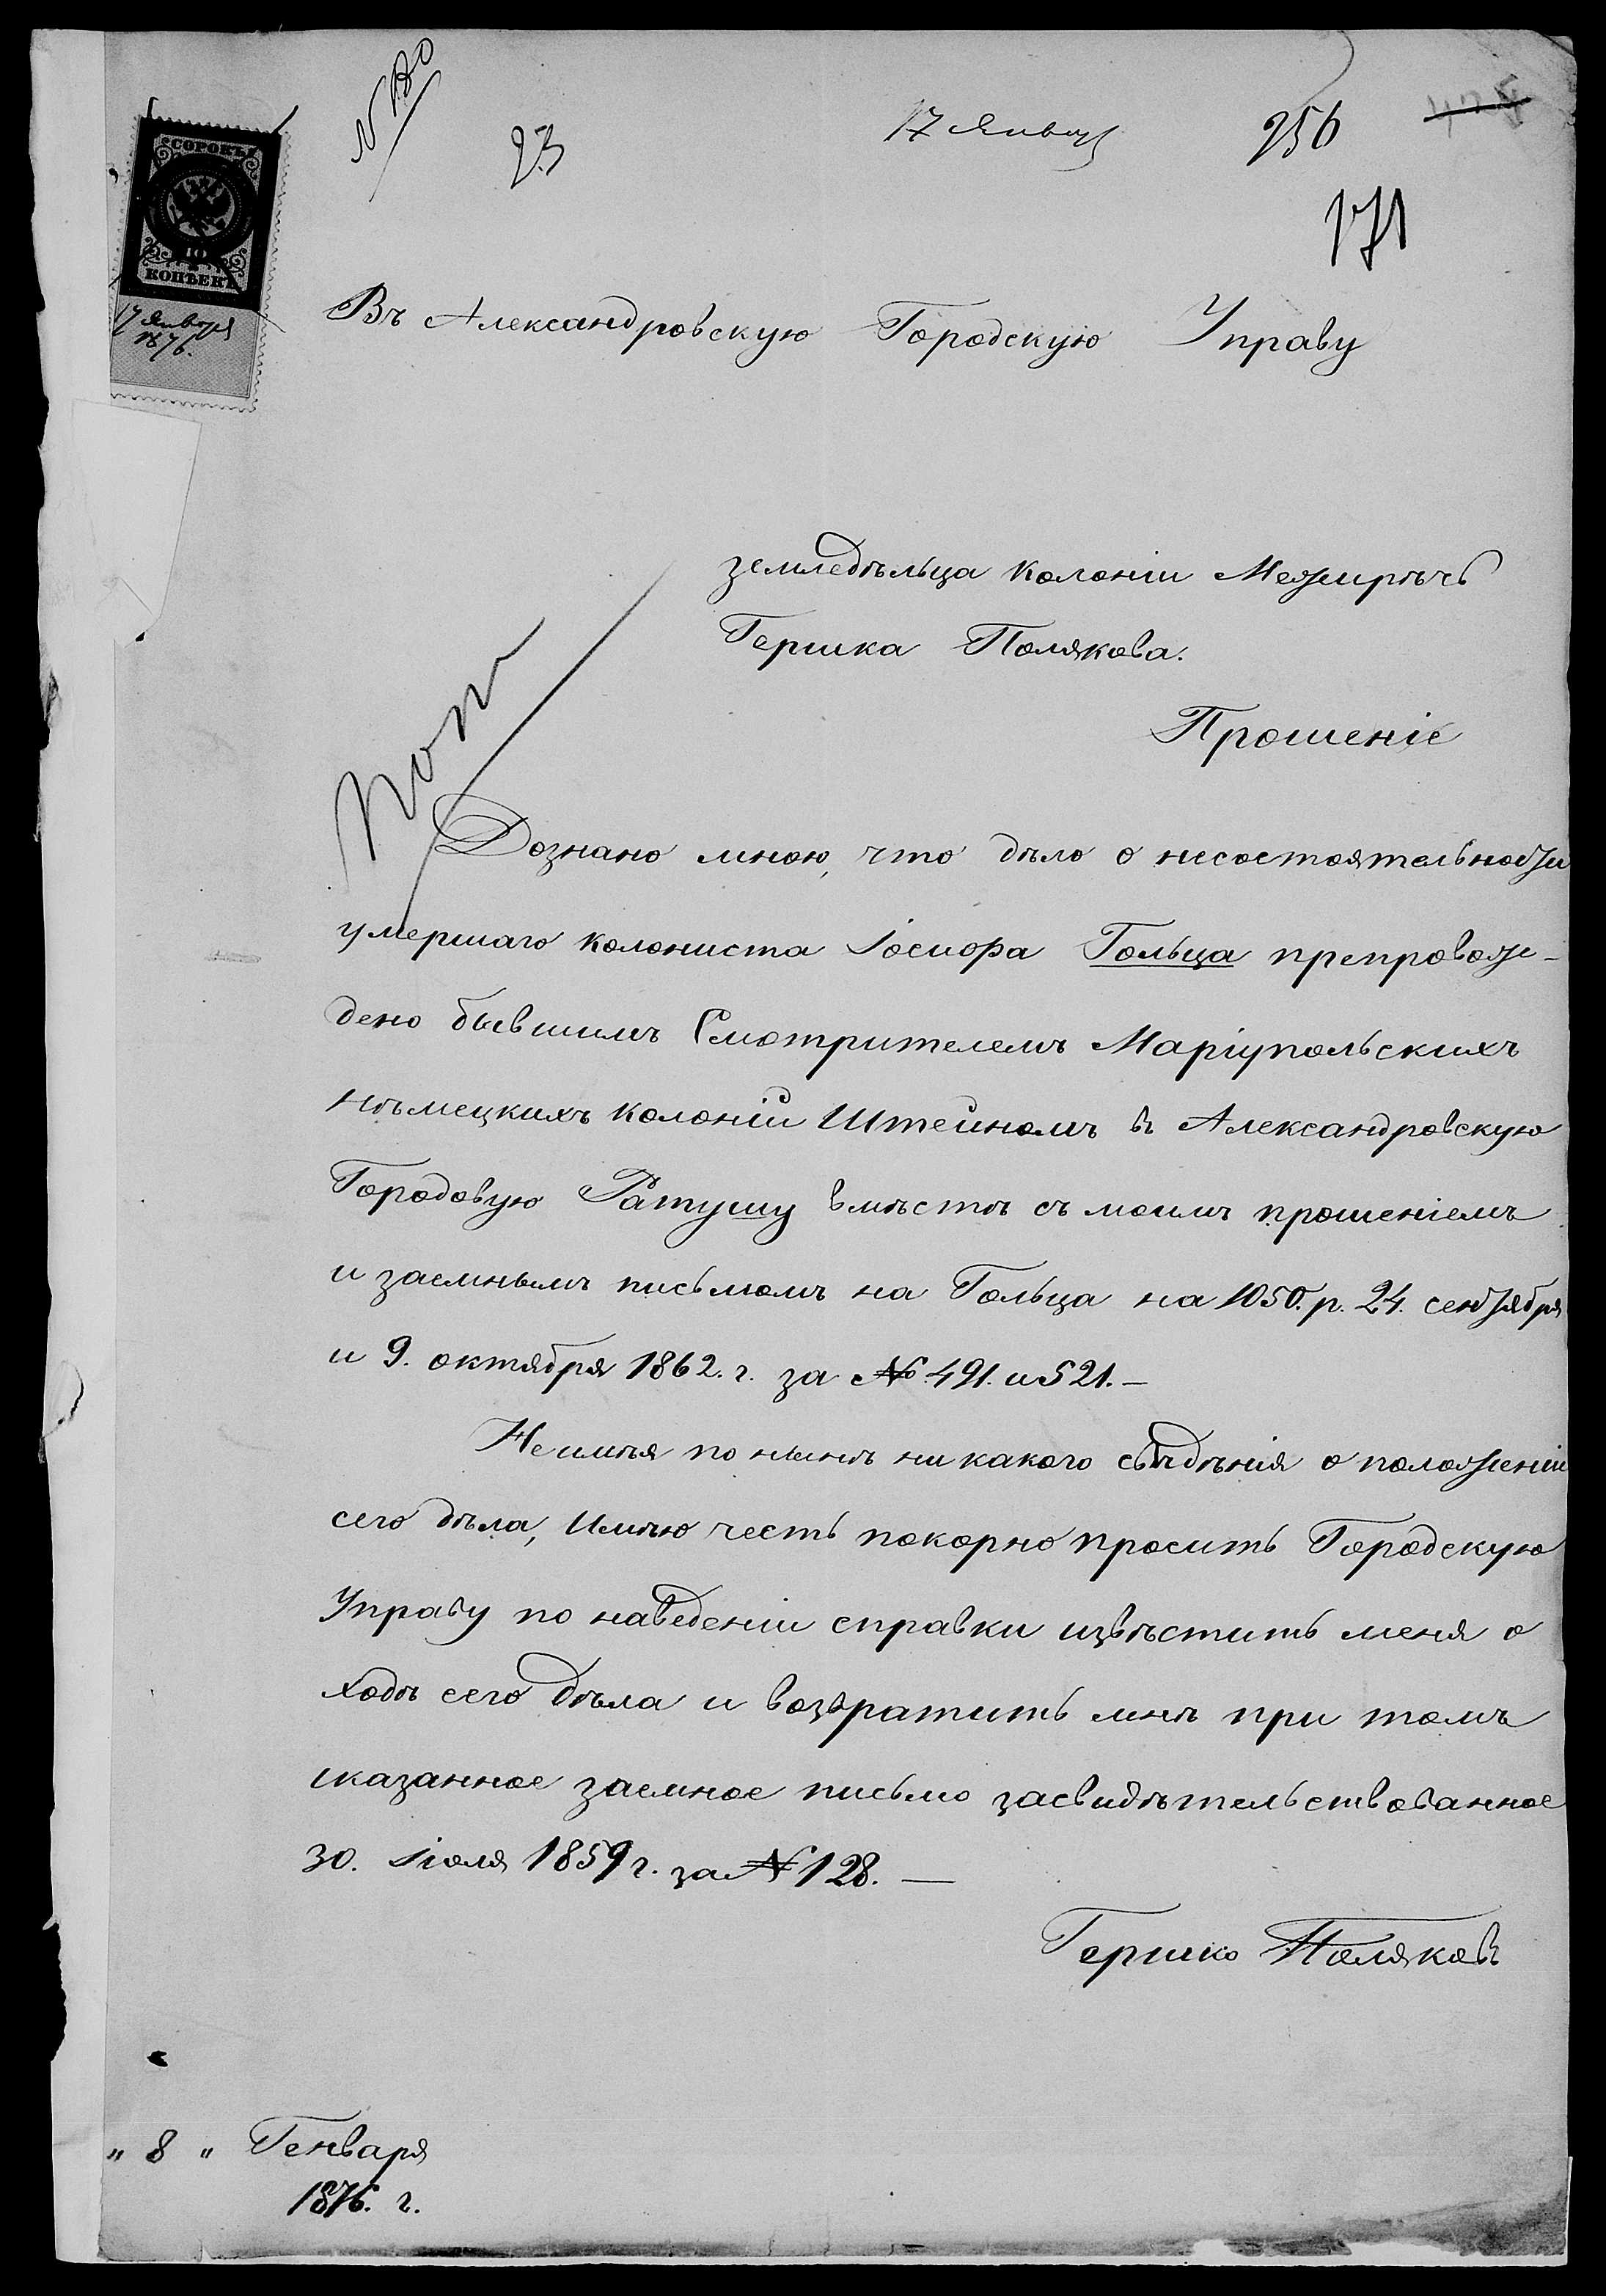 23
17 Января
256
171
СОРОКЪ
40
КОПѢЕКЪ
17 Января
1876.
Въ Александровскую Городскую Управу
земледѣльца колоніи Межирѣчь
Гершка Полякова.
Прошеніе
Дознано мною, что дѣло о несостоятельности
умершаго колониста Іосифа Гольца препровож-
дено бывшимъ Смотрителемъ Маріупольскихъ
нѣмецкихъ колоній Штейномъ въ Александровскую
Городовую Ратушу вмѣстѣ съ моимъ прошеніемъ
и заемнымъ письмомъ на Гольца на 1050. р. 24. сентября
и 9. октября 1862. г. за № 491. и 521. —
Не имѣя по нынѣ ни какого свѣдѣнія о положеніи
сего дѣла, имѣю честь покорно просить Городскую
Управу по наведеніи справки извѣстить меня о
ходѣ сего дѣла и возвратить мнѣ при томъ
сказанное заемное письмо засвидѣтельствованное
30. Іюля 1859 г. за № 128. —
Гершко Поляковъ
„ 8 „ Генваря
1876. г.